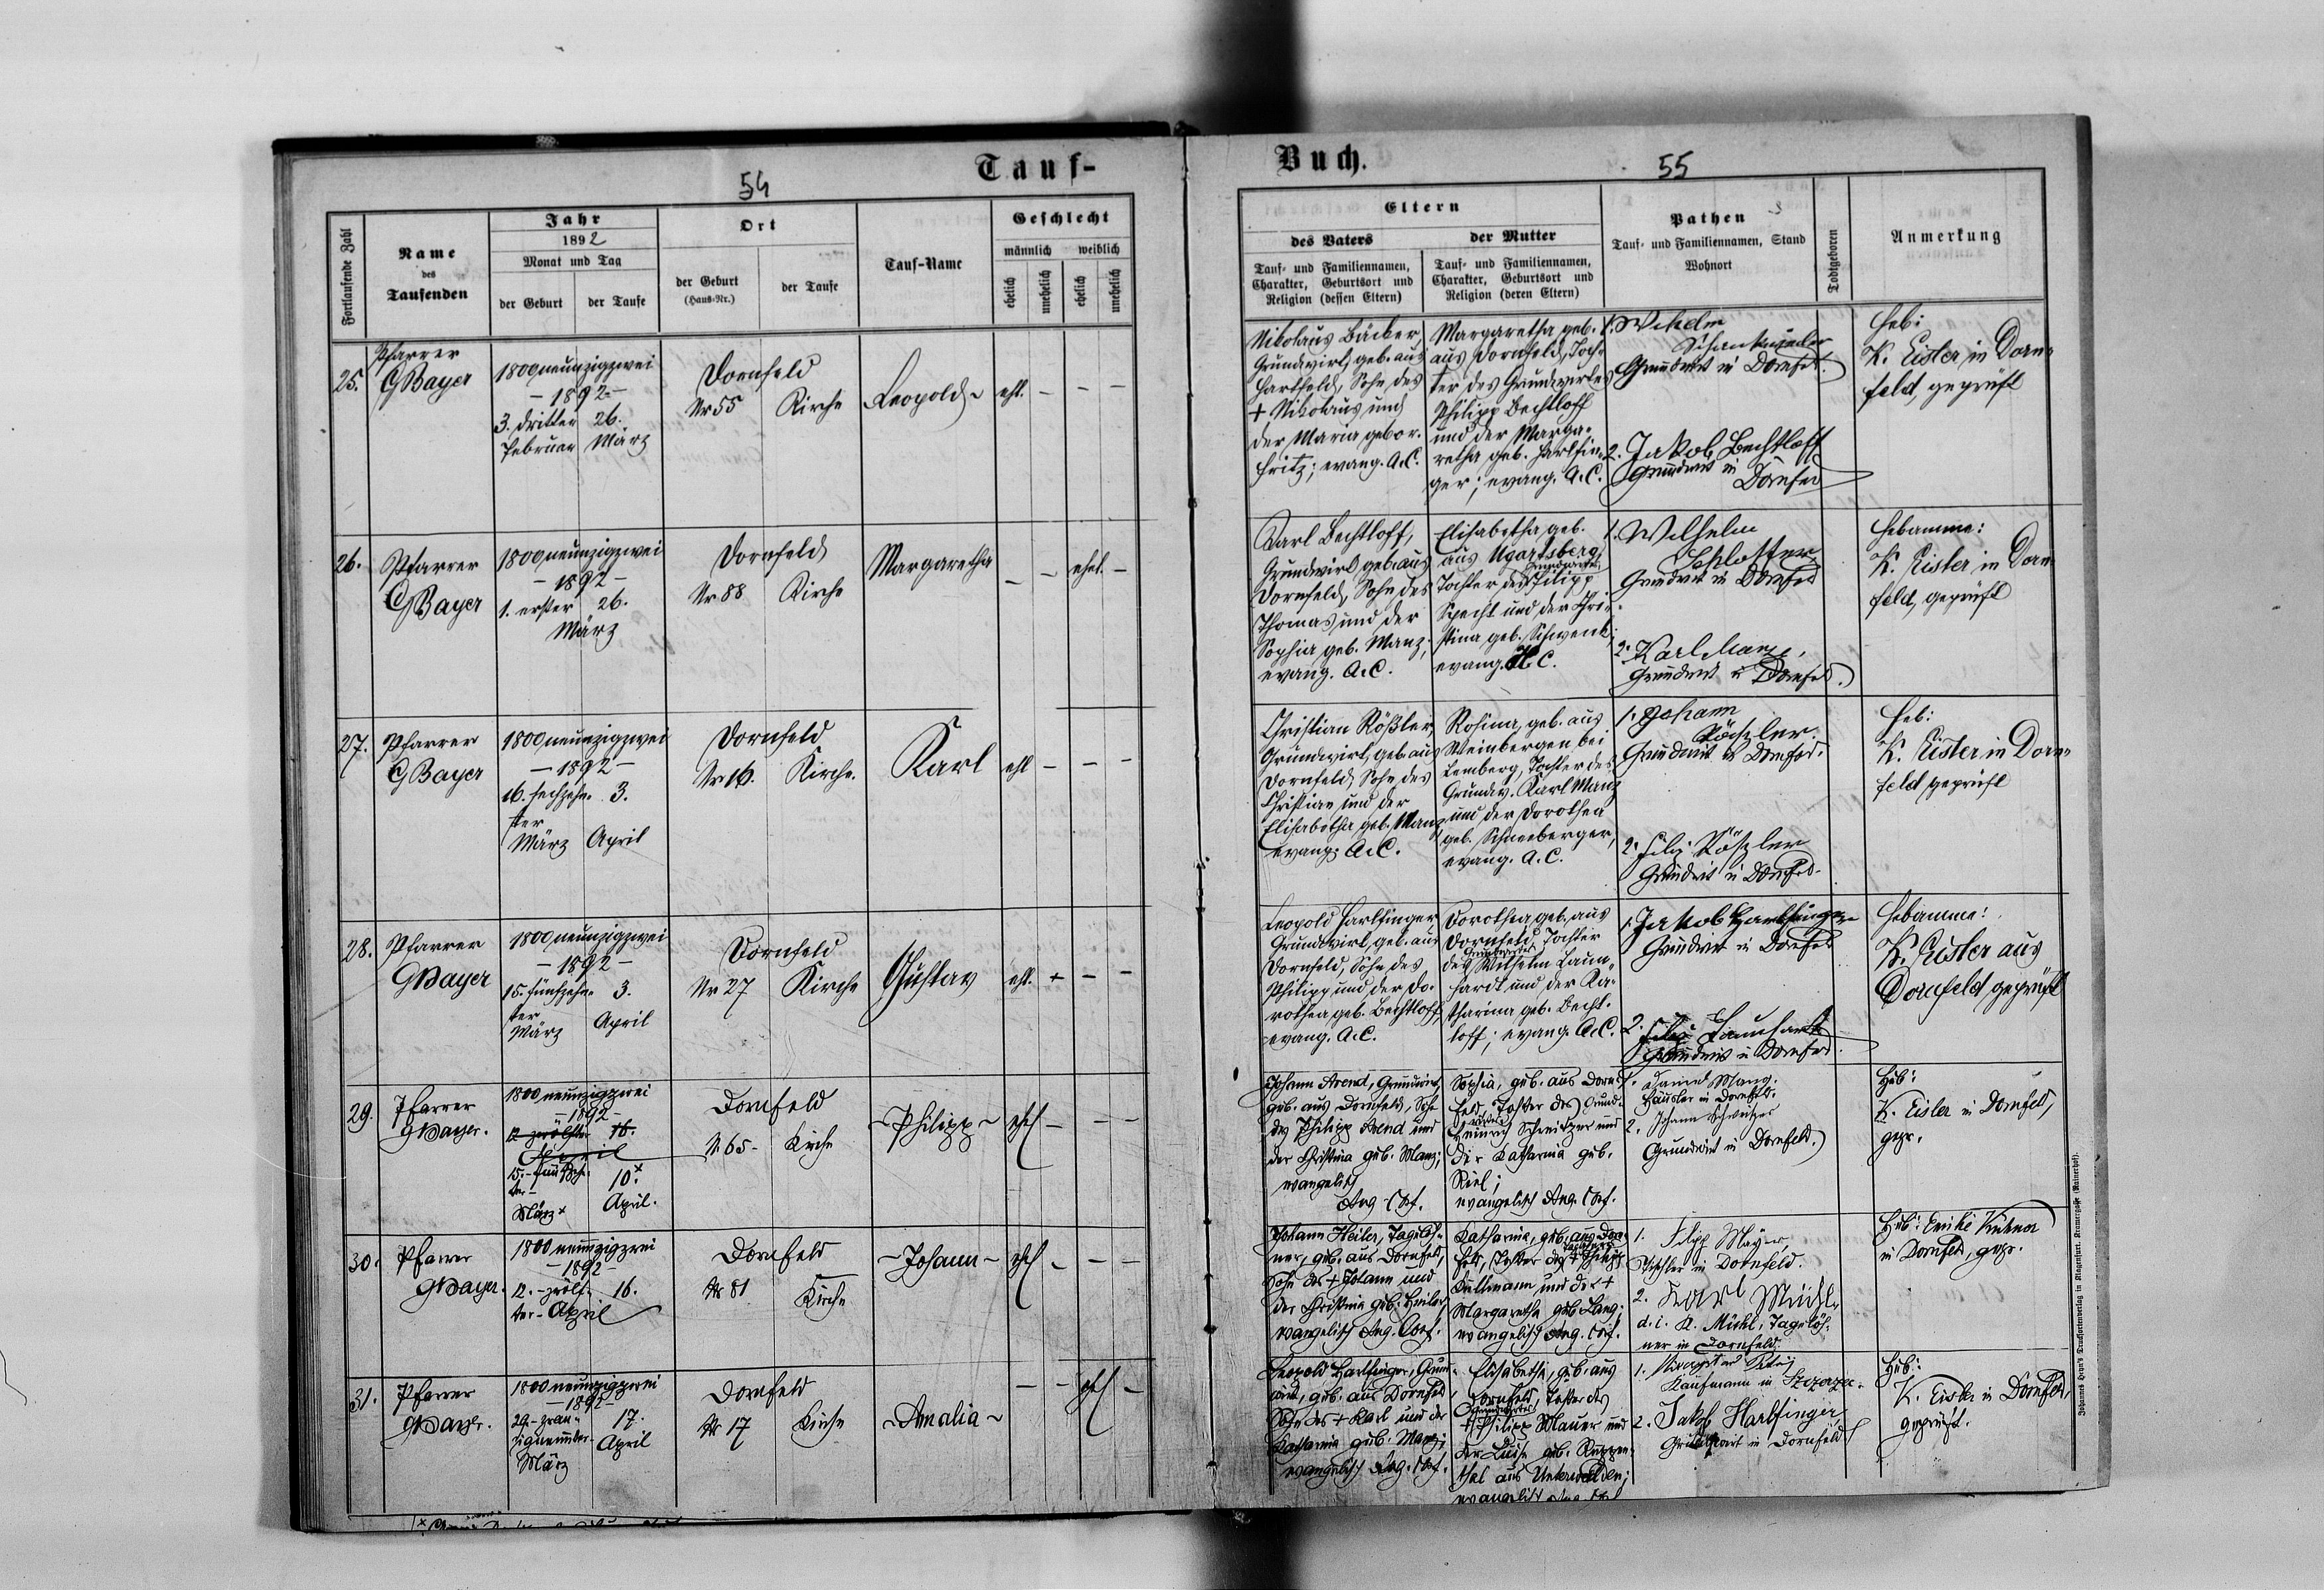 Tauf-
54
Fortlaufende Zahl
Name
des
Taufenden
Jahr
1892
Monat und Tag
der Geburt
der Taufe
Ort
der Geburt
(Haus-Nr.)
der Taufe
Tauf-Name
Geschlecht
männlich
weiblich
ehelich
unehelich
ehelich
unehelich
25.
Pfarrer
GBayer
1800neunzigzwei
– 1892 –
3. dritter
Februar
26.
März
Dornfeld
Nr 55
Kirche
Leopold
ehl. – – –
26.
Pfarrer
GBayer
1800neunzigzwei
– 1892 –
1. erster 26.
März
Dornfeld
Nr 88
Kirche
Margaretha
– – ehel. –
27.
Pfarrer
GBayer
1800neunzigzwei
– 1892 –
16. sechzehn-
ter
März
3.
April
Dornfeld
Nr 16.
Kirche.
Karl
ehl – – –
28.
Pfarrer
GBayer
1800neunzigzwei
– 1892 –
15. fünfzehn-
ter
März
3.
April
Dornfeld
Nr 27
Kirche
Gustav
ehl. + – –
29.
Pfarrer
GBayer.
1800neunzigzwei
– 1892 –
12 zwölfter 16.
April
15.-fünfzehn-
ter-
März ×
10. ×
April.
Dornfeld
Nr 65-
Kirche
- Philipp -
ehel – – –
30.
Pfarrer
GBayer.
1800neunzigzwei
– 1892 –
12.-zwölf- 16.
ter- April
Dornfeld
Nr 81
Kirche
- Johann -
ehel – – –
31.
Pfarrer
GBayer.
1800neunzigzwei
– 1892 –
29.-zwan-
zigneunter-
März
17.
April
Dornfeld
Nr 17
Kirche
- Amalia -
– – ehel –
Buch.
55
Eltern
des Vaters
Tauf- und Familiennamen,
Charakter, Geburtsort und
Religion (dessen Eltern)
der Mutter
Tauf- und Familiennamen,
Charakter, Geburtsort und
Religion (deren Eltern)
Pathen
Tauf- und Familiennamen, Stand
Wohnort
Todtgeboren
Anmerkung
Nikolaus Bäcker,
Grundwirt, geb. aus
Hartfeld, Sohn des
+ Nikolaus und
der Maria gebor.
Fritz; evang. A.C.
Margaretha geb.
aus Dornfeld, Toch-
ter des Grundwirtes
Philipp Bechtloff
und der Marga-
retha geb. Harlfin-
ger; evang. A.C.
1. Wilhelm
Grundwirt in Dornfeld.
2. Jakob Bechtloff
Grundwirt in
Dornfeld
Heb:
K. Eisler in Dorn-
feld, geprüft
Karl Bechtloff,
Grundwirt geb. aus
Dornfeld, Sohn des
Thomas und der
Sophia geb. Manz;
evang. A.C.
Elisabetha geb.
aus Ugartsberg,
Grundwirtes
Tochter des Philipp
Specht und der Chri-
stina geb. Schwenk;
evang. H.C.
1. Wilhelm
Schlosser
Grundwirt in Dornfeld
2. Karl Manz,
Grundwirt in Dornfeld.
Hebamme:
K. Eisler in Dorn-
feld, geprüft
Christian Rößler,
Grundwirt, geb. aus
Dornfeld, Sohn des
Christian und der
Elisabetha geb. Manz
evang. A.C.
Rosina, geb. aus
Weinbergen bei
Lemberg, Tochter des
Grundw. Karl Manz
und der Dorothea
geb. Schneeberger,
evang. A.C.
1. Johann
Röszler.
Grundwirt in Dornfeld.
2. Filip Röszler
Grundwirt in Dornfeld.
Heb:
K. Eisler in Dorn-
feld, geprüft
Leopold Harlfinger
Grundwirt, geb. aus
Dornfeld, Sohn des
Philipp und der Do-
rothea geb. Bechtloff,
evang. A.C.
Dorothea geb. aus
Dornfeld, Tochter
Grundwirtes
des Wilhelm Laun-
hardt und der Ka-
tharina geb. Becht-
loff; evang. A.C.
1. Jakob Harlfinger
Grundwirt in Dornfeld
2. Filip Launhardt
Grundwirt in Dornfeld.
Hebamme:
K. Eisler aus
Dornfeld, geprüft
Johann Arend, Grundwirt,
geb. aus Dornfeld, Sohn
des Philipp Arend und
der Christina geb. Manz;
evangelisch
Aug. Conf.
Sophia, geb. aus Dorn-
feld, Tochter des Grund-
wirtes
Heinrich Schweitzer und
der Katharina geb.
Riel;
evangelisch Aug. Conf.
1. Daniel Manz.
Häusler in Dornfeld.
2. Johann Schweitzer
Grundwirt in Dornfeld.
Heb:
K. Eisler in Dornfeld,
gepr.
Johann Heiler, Taglöh-
ner, geb. aus Dornfeld,
Sohn des + Johann und
der Christina geb. Heiler;
evangelisch Aug. Conf.
Katharina, geb. aus Dorn-
feld, Tochter des + Philipp
Kullmann und der +
Margaretha geb. Lang;
evangelisch Aug. Conf.
1. Filipp Mayer,
Tischler in Dornfeld.
2. Karl Mühl-
d.i. K. Mühl, Tagelöh-
ner in Dornfeld.
Heb: Emilie Kühner
in Dornfeld, gepr.
Leopold Harlfinger, Grund-
wirt, geb. aus Dornfeld
Sohn des + Karl und der
Katharina geb. Manz;
evangelisch Aug. Conf.
Elisabetha, geb. aus
Dornfeld, Tochter des
Grundwirtes
+ Philipp Mauer und
der Luise geb. Ruppen-
thal aus Unterwalden;
evangelisch Aug. Conf
1.
Kaufmann in Szczerzec.
2. Jakob Harlfinger,
Grundwirt in Dornfeld
Heb:
K. Eisler in Dornfeld,
geprüft.
Johannes Heyn's Drucksortenverlag in Klagenfurt, Kramergasse (Rainerhof).